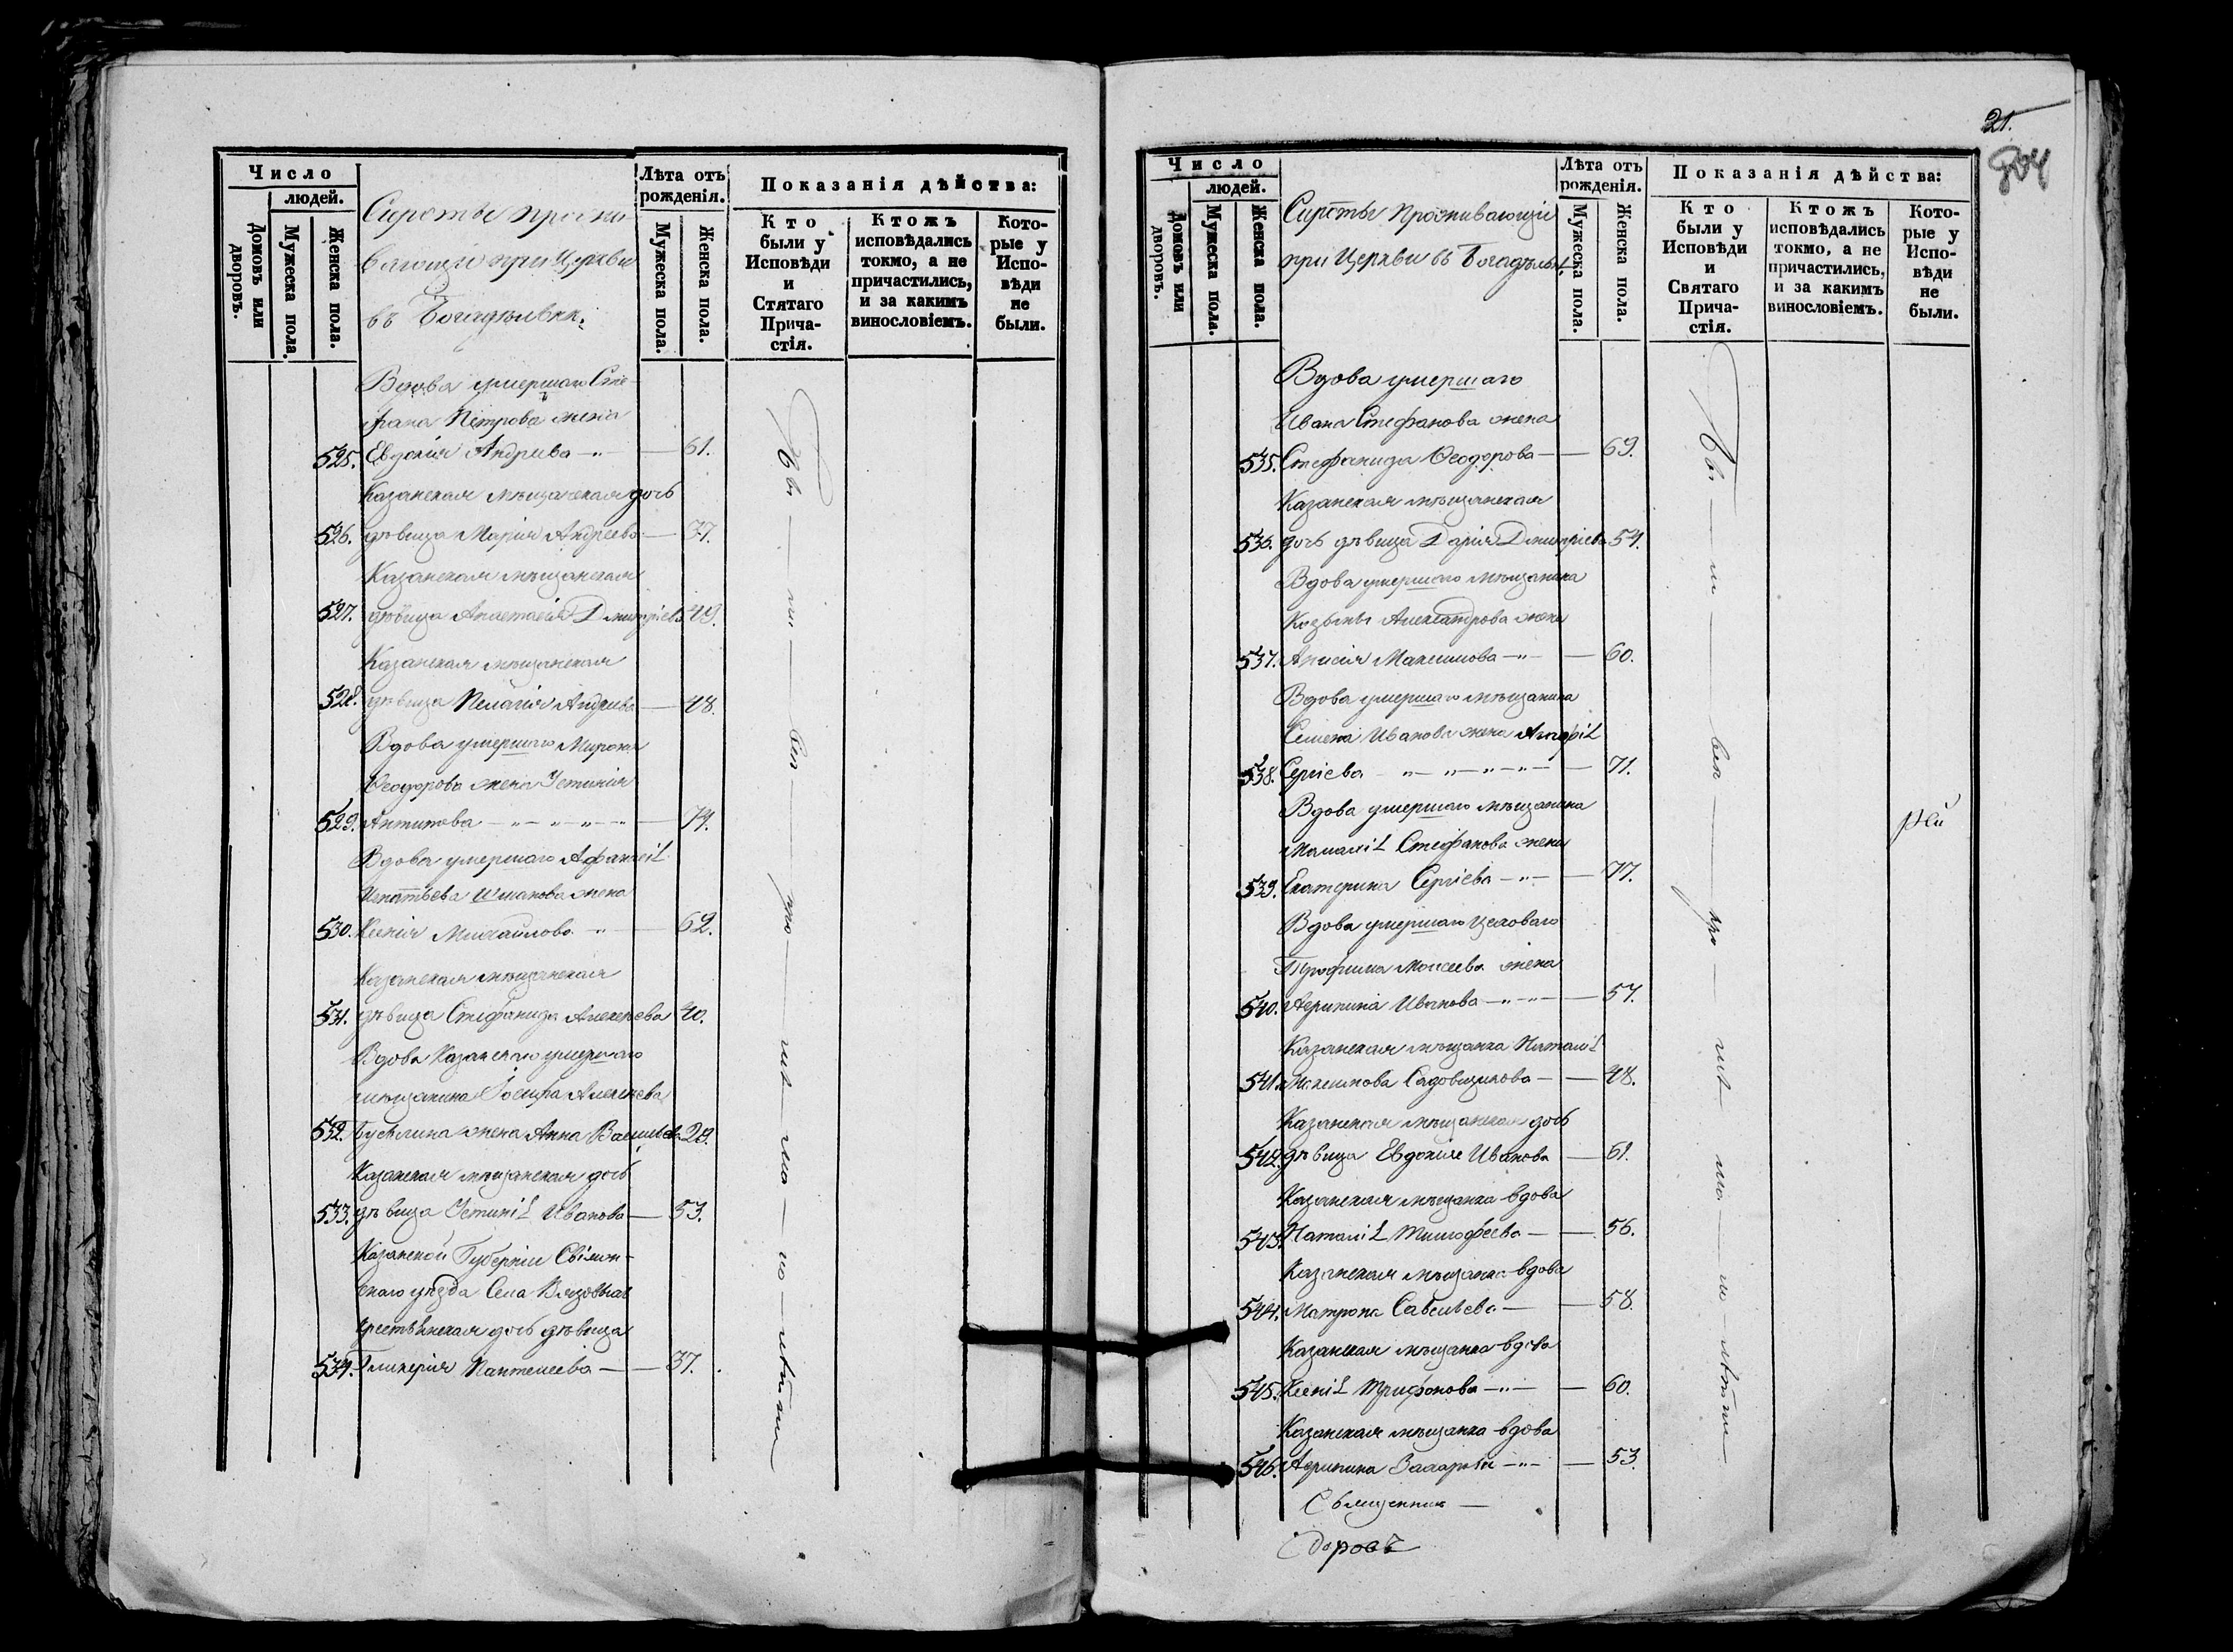 Число
людей.
Домовъ или дворовъ.
Мужеска пола.
Женска пола.
Сироты прожи-
вающіе при Церкви
въ Богадѣльнѣ.
Лѣта отъ рожденія.
Мужеска пола.
Женска пола.
Показанія дѣйства:
Кто были у Исповѣди и Стятаго Прича-стія.
Ктожъ исповѣдались токмо, а не причастились, и за какимъ винословіемъ.
Кото-рые у Испо-вѣди не были.
Вдова умершаго Сте-
фана Петрова жена
525. Евдокія Андреева —"— — 61.
Казанская мѣщанская дочь
526. дѣвица Марія Андреева — 37.
Казанская мѣщанская
527. дѣвица Анастасія Дмитріева 49.
Казанская мѣщанская
528. дѣвица Пелагія Андреева — 48.
Вдова умершаго Мирона
Ѳеодорова жена Устинія
529. Антипова —"—"—"—"— 74.
Вдова умершаго Афанасія
Игнатьева жена
530. Ксенія Михайлова " — 62.
Казанская мѣщанская
531. дѣвица Стефанида Алексѣева 40.
Вдова Казанскаго умершаго
мѣщанина Іосифа Алексѣева
532. жена Анна Васильева 29.
Казанская мѣщанская дочь
533. дѣвица Устинія Иванова — 53.
Казанской Губерніи Свіяж-
скаго уѣзда Села Вязовыхъ
крестьянская дочь дѣвица
534. Гликерія Пантелеева — — 37.
21.
804
Число
людей.
Домовъ или дворовъ.
Мужеска пола.
Женска пола.
Сироты проживающіе
при Церкви въ Богадѣльнѣ.
Лѣта отъ рожденія.
Мужеска пола.
Женска пола.
Показанія дѣйства:
Кто были у Исповѣди и Святаго Прича-стія.
Ктожъ исповѣдались токмо, а не причастились, и за какимъ винословіемъ.
Кото-рые у Испо-вѣди не были.
Вдова умершаго
Ивана Стефанова жена
535. Стефанида Ѳеодорова — — 69.
Казанская мѣщанская
536. дочь дѣвица Дарія Дмитріева 54.
Вдова умершаго мѣщанина
Козьмы Александрова жена
537. Анисія Максимова —"— — 60.
Вдова умершаго мѣщанина
Семена Иванова жена
538. Сергіева —"—"—"—"— — 71.
Вдова умершаго мѣщанина
Стефанова жена
539. Екатерина Сергіева —"— — 77.
Вдова умершаго Цеховаго
Трофима Моисеева жена
540. Агрипина Иванова —"—"— — 57.
Казанская мѣщанка Наталія
541. Садовщикова — — 48.
Казанская мѣщанская дочь
542. дѣвица Евдокія Иванова — 61.
Казанская мѣщанка вдова
543. Наталія Тимофеева — — 56.
Казанская мѣщанка вдова
544. Матрона Савельева — — 58.
Казанская мѣщанка вдова
545. Ксенія Трифонова —"— — 60.
Казанская мѣщанка вдова
546. Агрипина Захарова —"— — 53.
Священник —